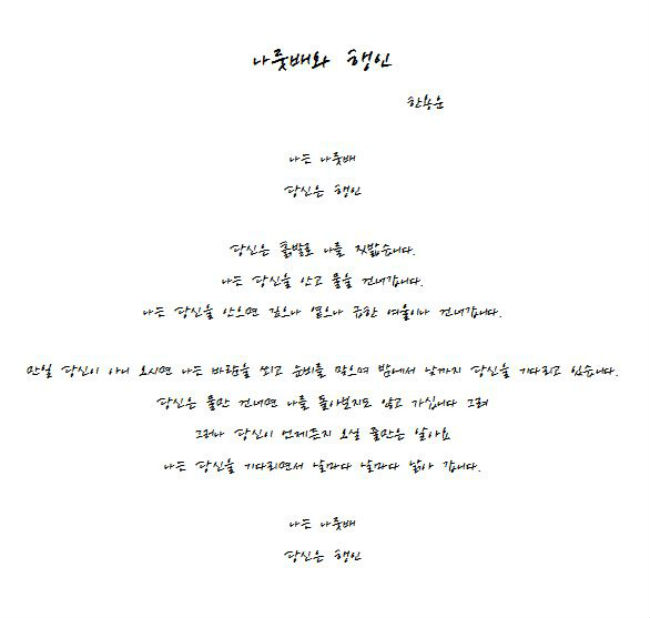 나룻배와 행인
한용운
나는 나룻배
당신은 행인
당신은 흙발로 나를 짓밟습니다.
나는 당신을 안고 물을 건너갑니다.
나는 당신을 안으면 깊으나 옅으나 급한 여울이나 건너갑니다.
만일 당신이 아니 오시면 나는 바람을 쐬고 눈비를 맞으며 밤에서 낮까지 당신을 기다리고 있습니다.
당신은 물만 건너면 나를 돌아보지도 않고 가십니다 그려
그러나 당신이 언제든지 오실 줄만은 알아요
나는 당신을 기다리면서 날마다 날마다 낡아 갑니다.
나는 나룻배
당신은 행인